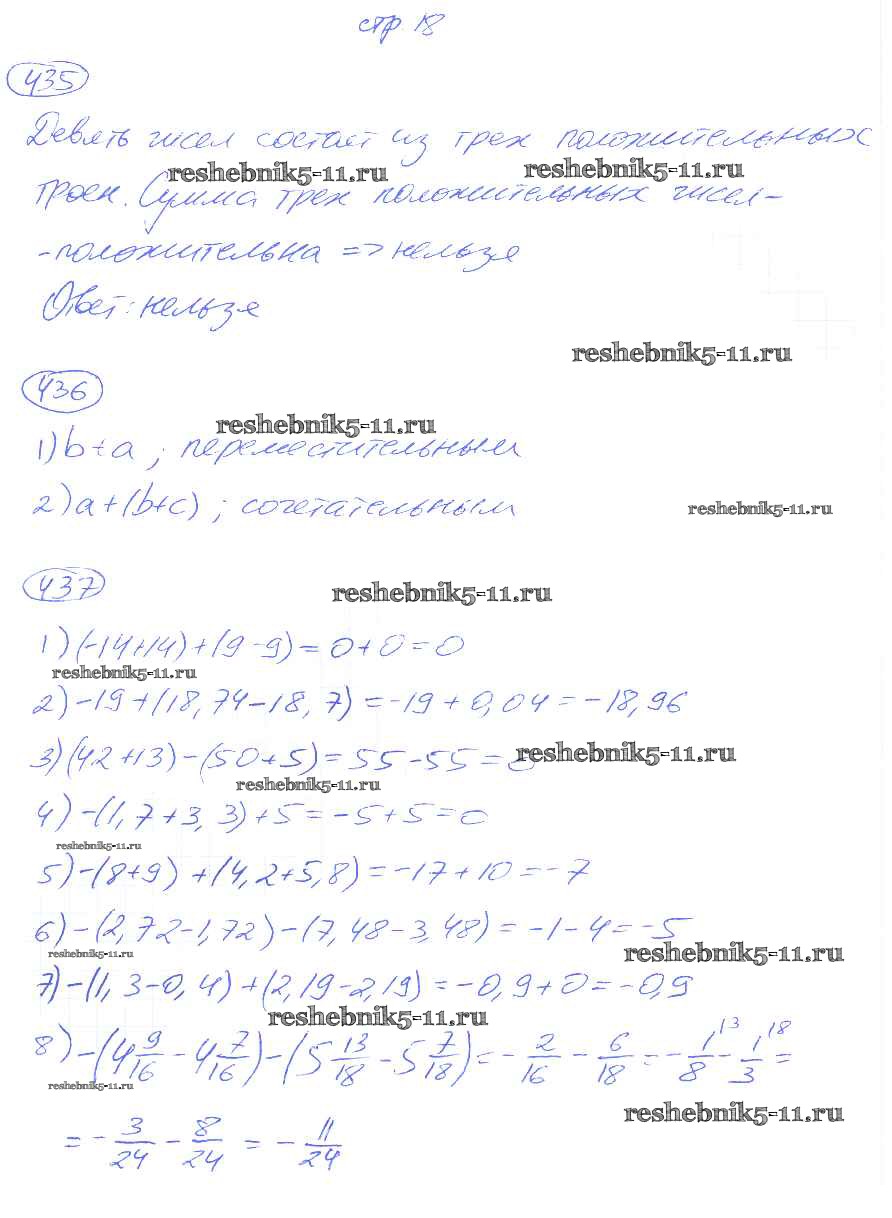 стр 18
435
Девять чисел состоят из трех положительных
reshebnik5-11.ru reshebnik5-11.ru
троек. Сумма трех положительных чисел-
-положительна => нельзя
Ответ: нельзя
reshebnik5-11.ru
436
reshebnik5-11.ru
1) b+a ; переместительным
2) a+(b+c) ; сочетательным
reshebnik5-11.ru
437
reshebnik5-11.ru
1) (-14+14)+(9-9)=0+0=0
reshebnik5-11.ru
2) -19+(18,74-18,7)=-19+0,04=-18,96
3) (42+13)-(50+5)=55-55=0
reshebnik5-11.ru
reshebnik5-11.ru
4) -(1,7+3,3)+5=-5+5=0
reshebnik5-11.ru
5) -(8+9)+(4,2+5,8)=-17+10=-7
6) -(2,72-1,72)-(7,48-3,48)=-1-4=-5
reshebnik5-11.ru reshebnik5-11.ru
7) -(1,3-0,4)+(2,19-2,19)=-0,9+0=-0,9
reshebnik5-11.ru
8) -(4 9/16 - 4 7/16)-(5 13/18 - 5 7/18)=- 2/16 - 6/18 = - 1/8 \3 - 1/3 \8 =
reshebnik5-11.ru
reshebnik5-11.ru
= - 3/24 - 8/24 = - 11/24